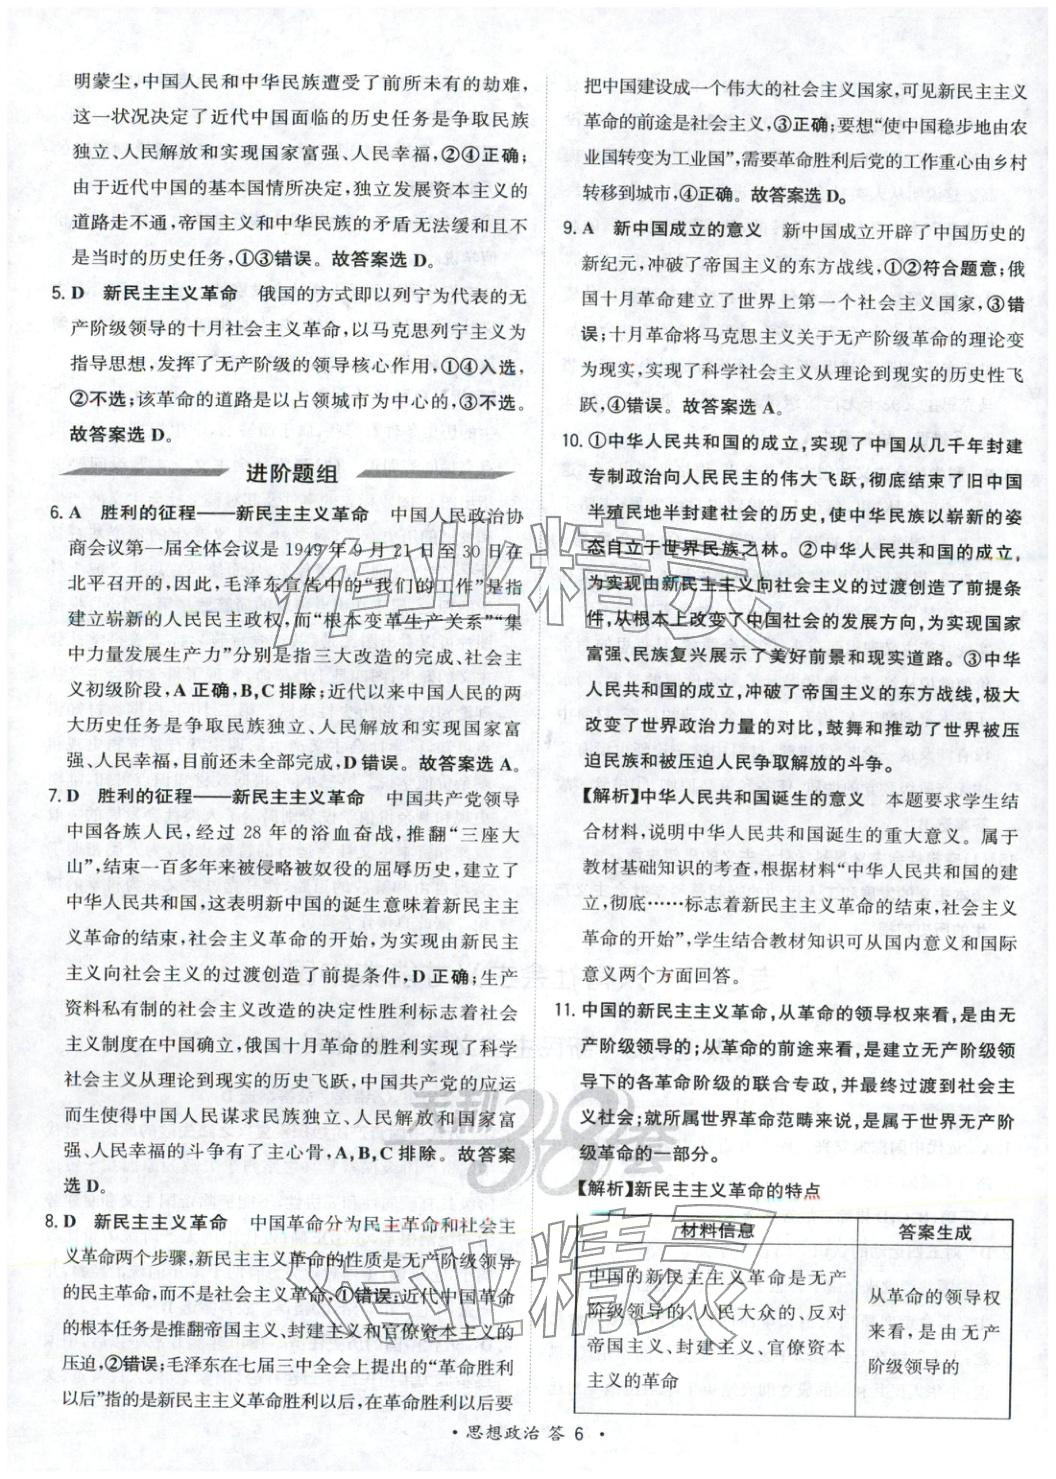 明蒙尘,中国人民和中华民族遭受了前所未有的劫难,
这一状况决定了近代中国面临的历史任务是争取民族
独立、人民解放和实现国家富强、人民幸福,②④正确;
由于近代中国的基本国情所决定,独立发展资本主义的
道路走不通,帝国主义和中华民族的矛盾无法缓和且不
是当时的历史任务,①③错误。故答案选 D。
5. D 新民主主义革命 俄国的方式即以列宁为代表的无
产阶级领导的十月社会主义革命,以马克思列宁主义为
指导思想,发挥了无产阶级的领导核心作用,①④入选,
②不选;该革命的道路是以占领城市为中心的,③不选。
故答案选 D。
进阶题组
6. A 胜利的征程——新民主主义革命 中国人民政治协
商会议第一届全体会议是 1949 年 9 月 21 日至 30 日在
北平召开的,因此,毛泽东宣告中的“我们的工作”是指
建立崭新的人民民主政权,而“根本变革生产关系”“集
中力量发展生产力”分别是指三大改造的完成、社会主
义初级阶段,A 正确,B、C 排除;近代以来中国人民的两
大历史任务是争取民族独立、人民解放和实现国家富
强、人民幸福,目前还未全部完成,D 错误。故答案选 A。
7. D 胜利的征程——新民主主义革命 中国共产党领导
中国各族人民,经过 28 年的浴血奋战,推翻“三座大
山”,结束一百多年来被侵略被奴役的屈辱历史,建立了
中华人民共和国,这表明新中国的诞生意味着新民主主
义革命的结束,社会主义革命的开始,为实现由新民主
主义向社会主义的过渡创造了前提条件,D 正确;生产
资料私有制的社会主义改造的决定性胜利标志着社会
主义制度在中国确立,俄国十月革命的胜利实现了科学
社会主义从理论到现实的历史飞跃,中国共产党的应运
而生使得中国人民谋求民族独立、人民解放和国家富
强、人民幸福的斗争有了主心骨,A、B、C 排除。故答案
选 D。
8. D 新民主主义革命 中国革命分为民主革命和社会主
义革命两个步骤,新民主主义革命的性质是无产阶级领导
的民主革命,而不是社会主义革命,①错误;近代中国革命
的根本任务是推翻帝国主义、封建主义和官僚资本主义的
压迫,②错误;毛泽东在七届三中全会上提出的“革命胜利
以后”指的是新民主主义革命胜利以后,在革命胜利以后要
把中国建设成一个伟大的社会主义国家,可见新民主主义
革命的前途是社会主义,③正确;要想“使中国稳步地由农
业国转变为工业国”,需要革命胜利后党的工作重心由乡村
转移到城市,④正确。故答案选 D。
9. A 新中国成立的意义 新中国成立开辟了中国历史的
新纪元,冲破了帝国主义的东方战线,①②符合题意;俄
国十月革命建立了世界上第一个社会主义国家,③错
误;十月革命将马克思主义关于无产阶级革命的理论变
为现实,实现了科学社会主义从理论到现实的历史性飞
跃,④错误。故答案选 A。
10. ①中华人民共和国的成立,实现了中国从几千年封建
专制政治向人民民主的伟大飞跃,彻底结束了旧中国
半殖民地半封建社会的历史,使中华民族以崭新的姿
态自立于世界民族之林。②中华人民共和国的成立,
为实现由新民主主义向社会主义的过渡创造了前提条
件,从根本上改变了中国社会的发展方向,为实现国家
富强、民族复兴展示了美好前景和现实道路。③中华
人民共和国的成立,冲破了帝国主义的东方战线,极大
改变了世界政治力量的对比,鼓舞和推动了世界被压
迫民族和被压迫人民争取解放的斗争。
【解析】中华人民共和国诞生的意义 本题要求学生结
合材料,说明中华人民共和国诞生的重大意义。属于
教材基础知识的考查,根据材料“中华人民共和国的建
立,彻底……标志着新民主主义革命的结束,社会主义
革命的开始”,学生结合教材知识可从国内意义和国际
意义两个方面回答。
11. 中国的新民主主义革命,从革命的领导权来看,是由无
产阶级领导的;从革命的前途来看,是建立无产阶级领
导下的各革命阶级的联合专政,并最终过渡到社会主
义社会;就所属世界革命范畴来说,是属于世界无产阶
级革命的一部分。
【解析】新民主主义革命的特点
材料信息 答案生成
中国的新民主主义革命是无产
阶级领导的、人民大众的、反对
帝国主义、封建主义、官僚资本
主义的革命
从革命的领导权
来看,是由无产
阶级领导的
· 思想政治 答 6 ·
作业精灵
作业精灵
天利38套